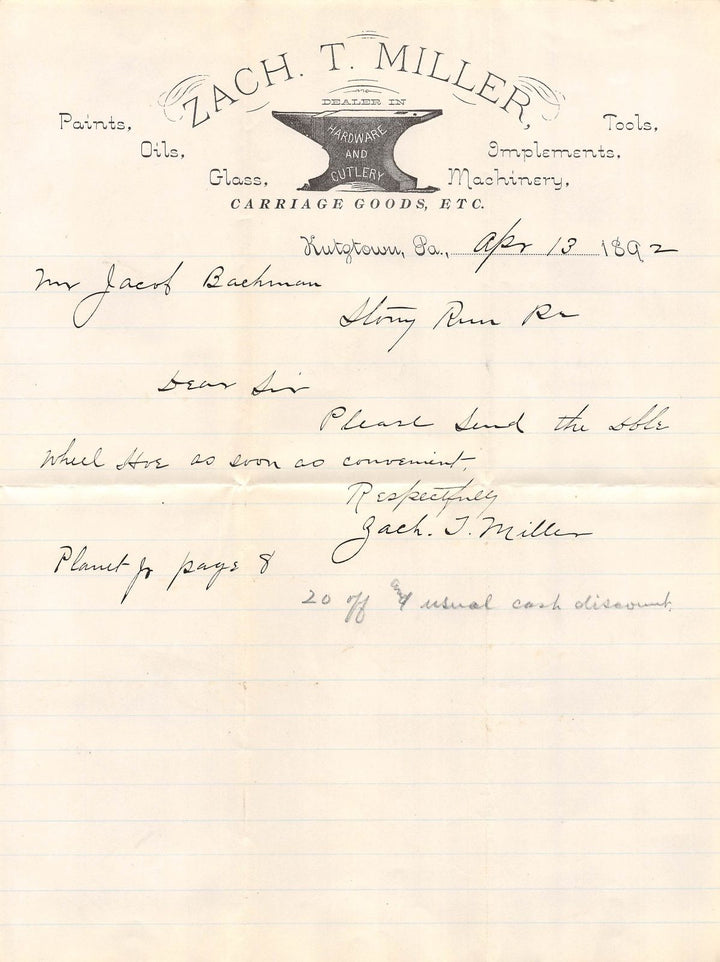 ZACH. T. MILLER,
DEALER IN
HARDWARE
AND
CUTLERY
Paints,
Oils,
Glass,
Tools,
Implements,
Machinery,
CARRIAGE GOODS, ETC.
Kutztown, Pa., Apr 13 1892
Mr Jacob Bachman
Stony Run Pa
Dear Sir
Please send the dble
wheel Hoe as soon as convenient.
Respectfully
Zach. T. Miller
Planet Jr page 8
20 off and usual cash discount.